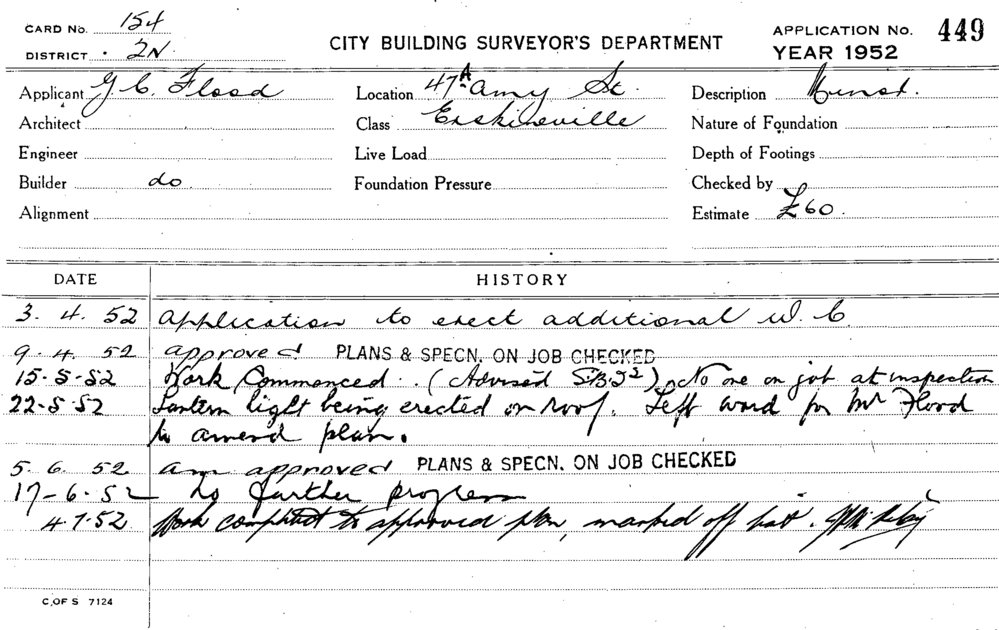 CARD No. 154
DISTRICT 2N
CITY BUILDING SURVEYOR'S DEPARTMENT
APPLICATION No. 449
YEAR 1952
Applicant G. C. Flood
Location 47A Amy St.
Description
Architect
Class Erskineville
Nature of Foundation
Engineer
Live Load
Depth of Footings
Builder do
Foundation Pressure
Checked by
Alignment
Estimate £60.
DATE HISTORY
3. 4. 52 Application to erect additional W.C.
9. 4. 52 approved PLANS & SPECN. ON JOB CHECKED
15-5-52 Work Commenced. (Advised ) No one on job at inspection
22-5-52 Lantern light being erected on roof. Left word for Mr Flood
to amend plan.
5. 6. 52 am approved PLANS & SPECN. ON JOB CHECKED
17-6-52 No further progress
4-7-52 Work completed to approved plan, marked off
C.OF S 7124